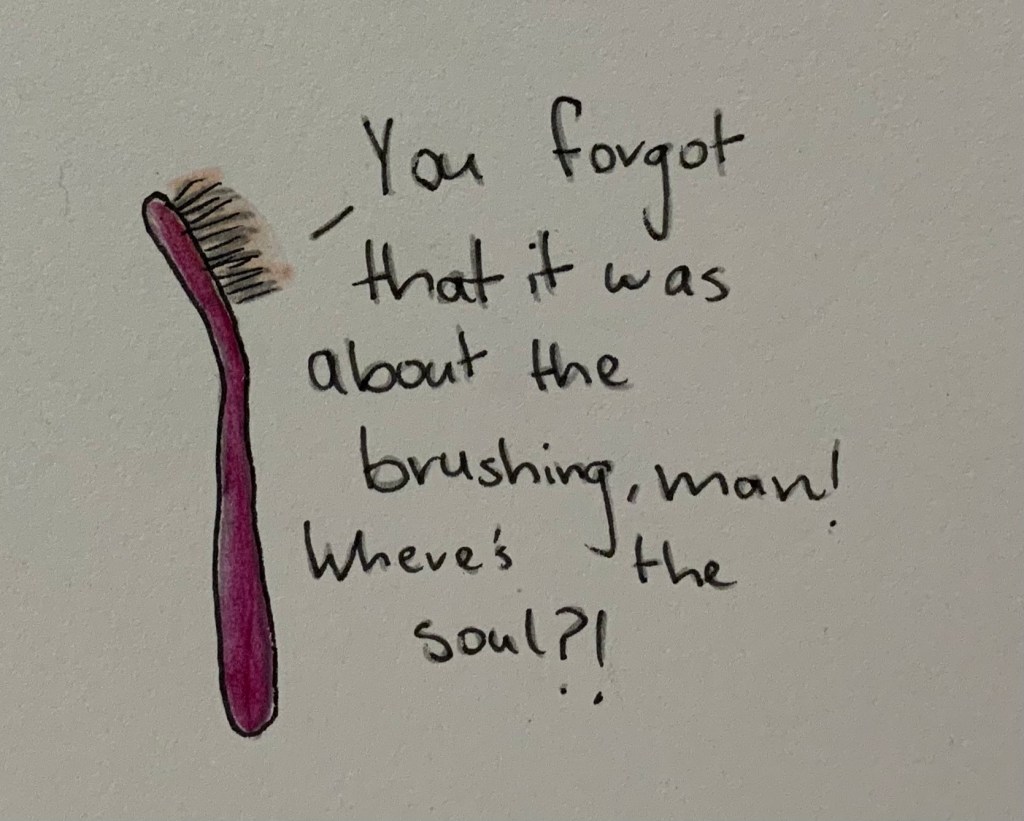 You forgot
that it was
about the
brushing, man!
Where's the
soul?!